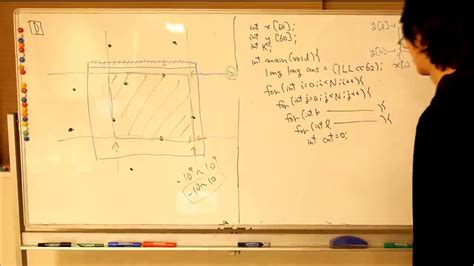 D
-10⁹~10⁹
-10~10
int x[60];
int y[60];
int K;
int main(void){
long long ans = (1LL<<62);
for(int i=0;i<N;i++){
for(int j=0;j<N;j++){
for(int k
for(int l
int cnt=0;
y[0]→
x[0]